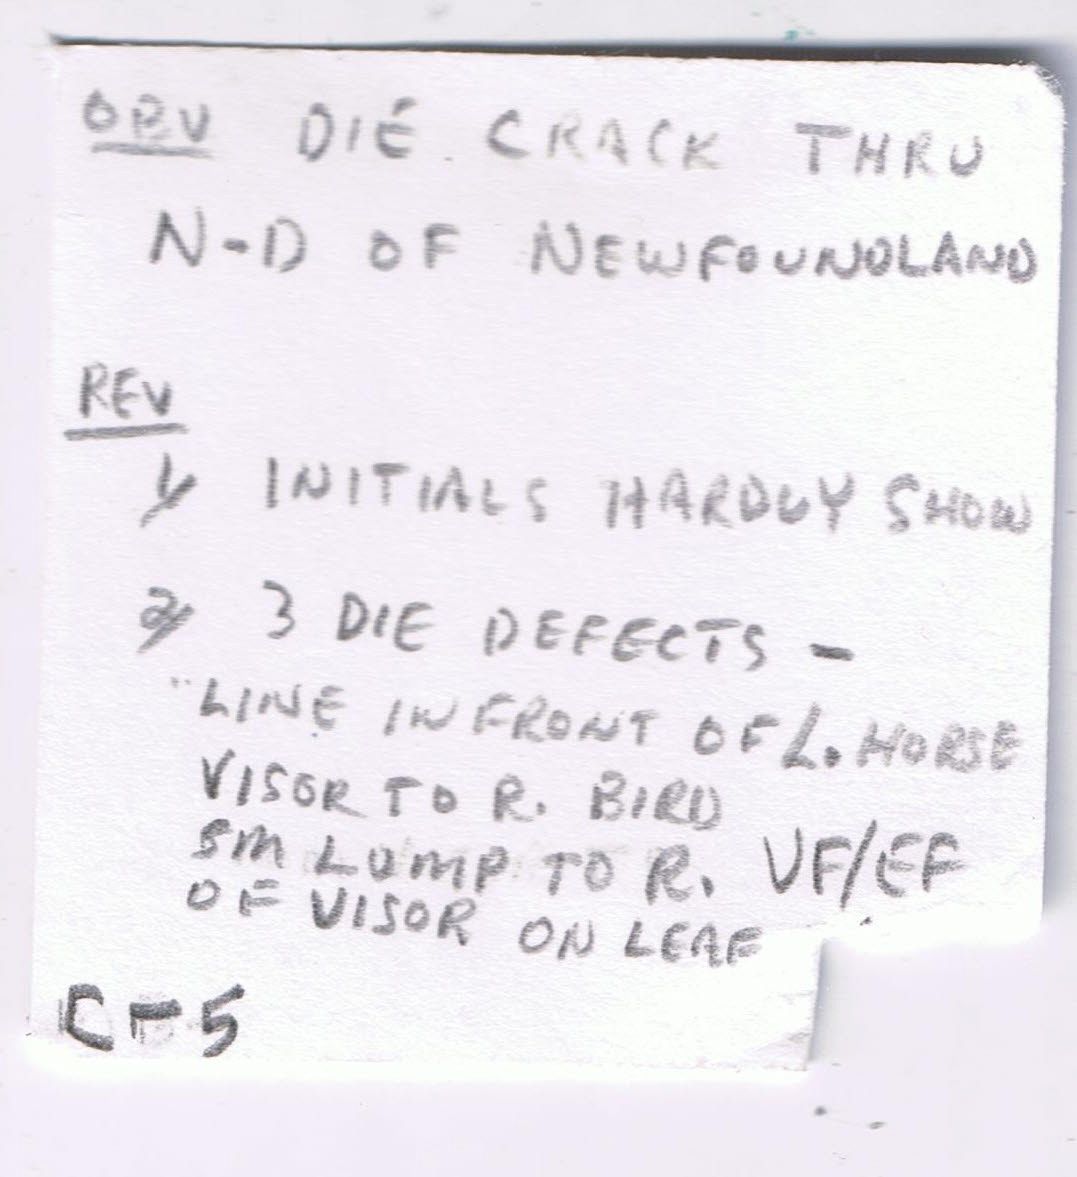 OBV DIE CRACK THRU
N-D OF NEWFOUNDLAND
REV
1/ INITIALS HARDLY SHOW
2/ 3 DIE DEFECTS -
"LINE IN FRONT OF L. HORSE
VISOR TO R. BIRD
SM LUMP TO R. VF/EF
OF VISOR ON LEAF
C-5